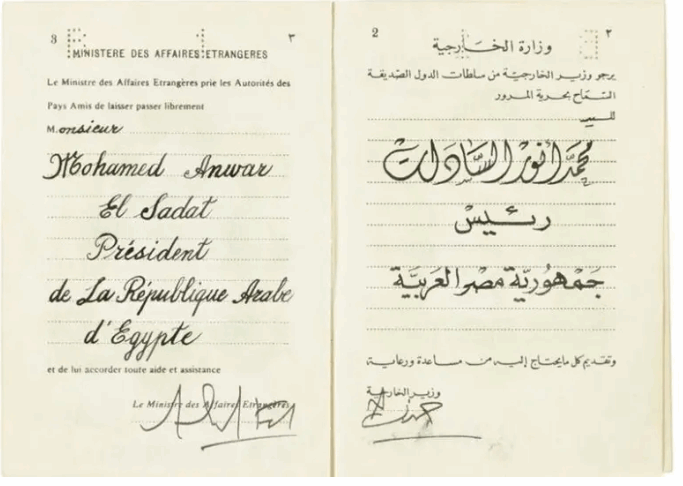 3 ٣
MINISTERE DES AFFAIRES ETRANGERES
Le Ministre des Affaires Etrangères prie les Autorités des
Pays Amis de laisser passer librement
Monsieur
Mohamed Anwar
El Sadat
Président
de La République Arabe
d'Egypte
et de lui accorder toute aide et assistance
Le Ministre des Affaires Etrangères
2 ٢
وزارة الخـارجية
يرجو وزير الخارجية من سلطات الدول الصديقة
السماح بحرية المرور
للسيد
محمد أنور السادات
رئيس
جمهورية مصر العربية
وتقديم كل مايحتاج إليه من مساعدة ورعاية
وزير الخارجية